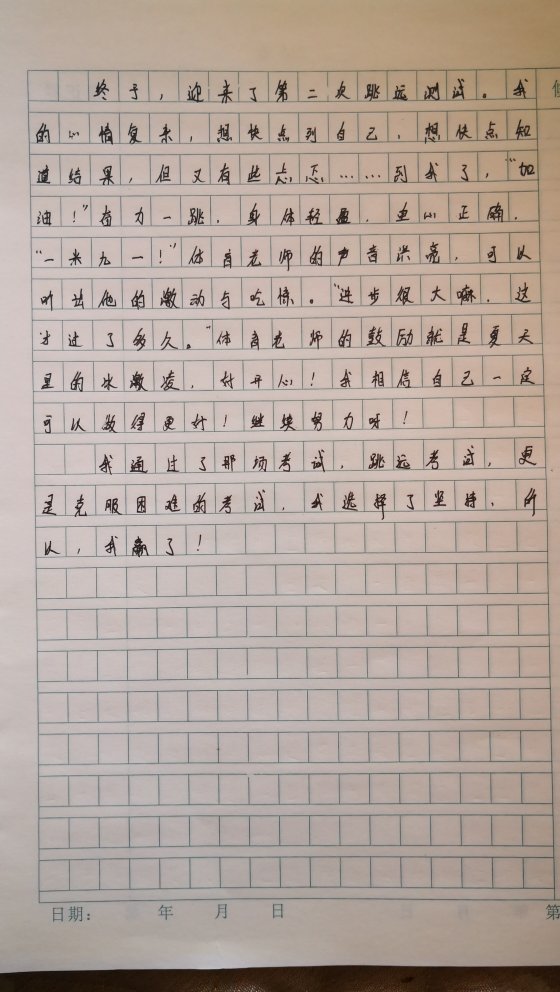 终于，迎来了第二次跳远测试。我
的心情复杂，想快点到自己，想快点知
道结果，但又有些忐忑……到我了，“加
油！”奋力一跳，身体轻盈，重心正确，
“一米九一！”体育老师的声音洪亮，可以
听出他的激动与吃惊。“进步很大嘛，这
才过了多久。”体育老师的鼓励就是夏天
里的冰激凌，好开心！我相信自己一定
可以做得更好！继续努力呀！
我通过了那场考试，跳远考试，更
是克服困难的考试，我选择了坚持，所
以，我赢了！
日期： 年 月 日 第